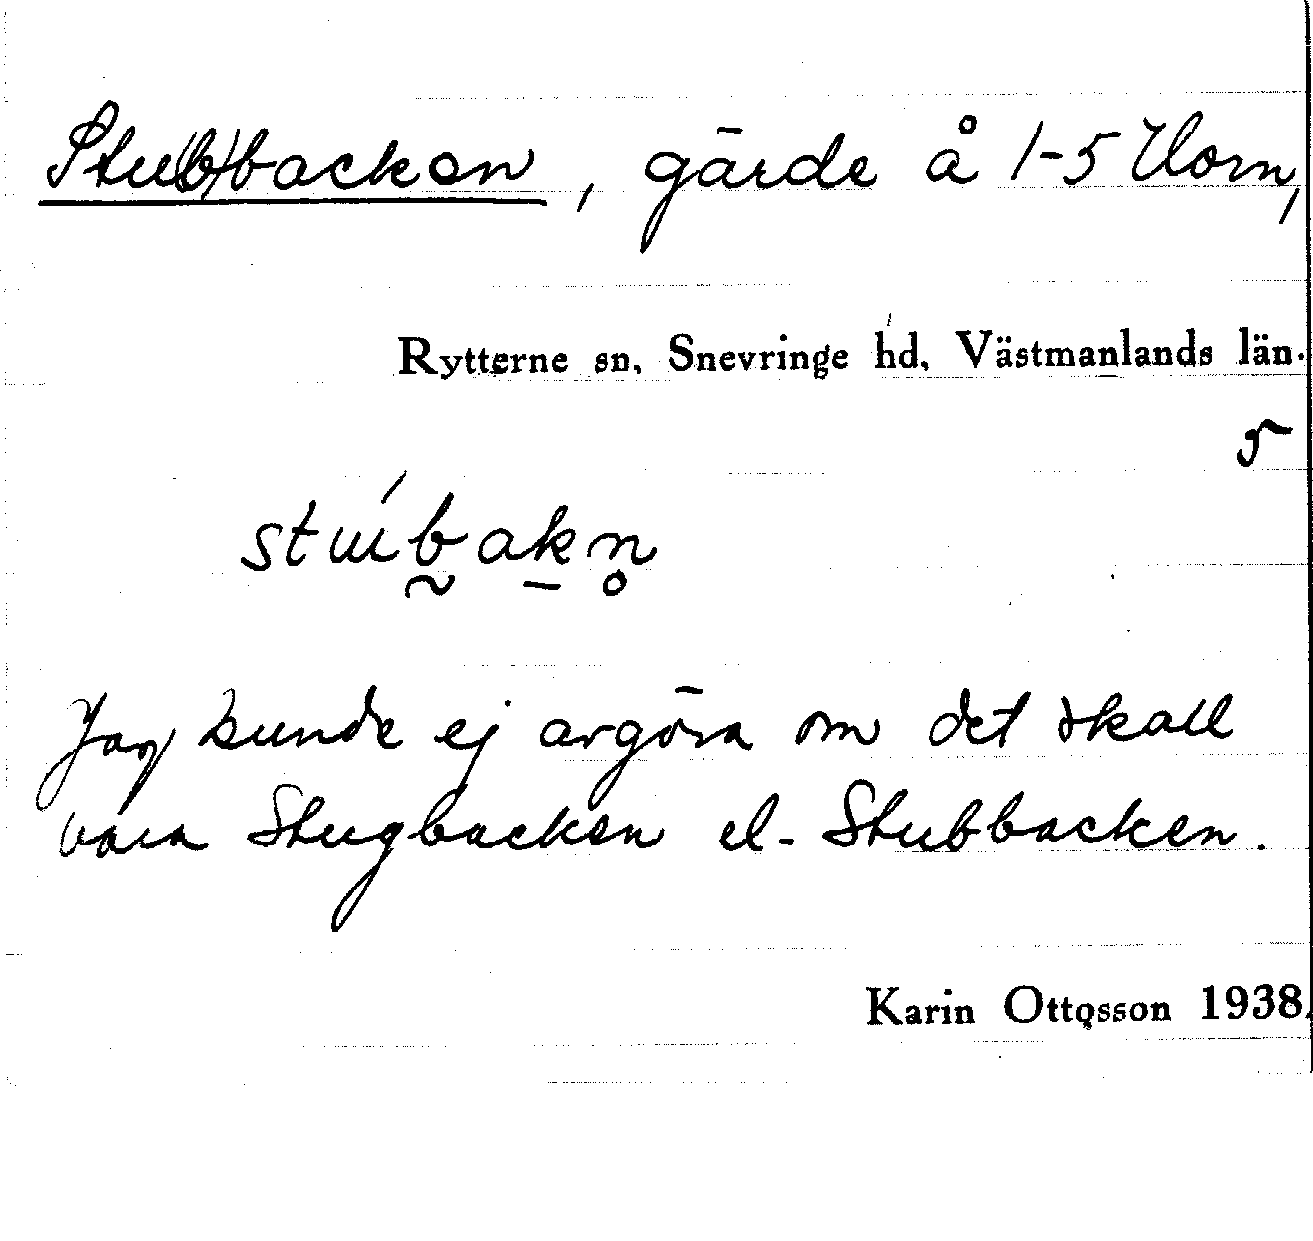 Stu(b)backen, gärde å 1-5 Horn,
Rytterne sn, Snevringe hd, Västmanlands län.
5
Jag kunde ej avgöra om det skall
vara Stugbacken el. Stubbacken.
Karin Ottosson 1938.